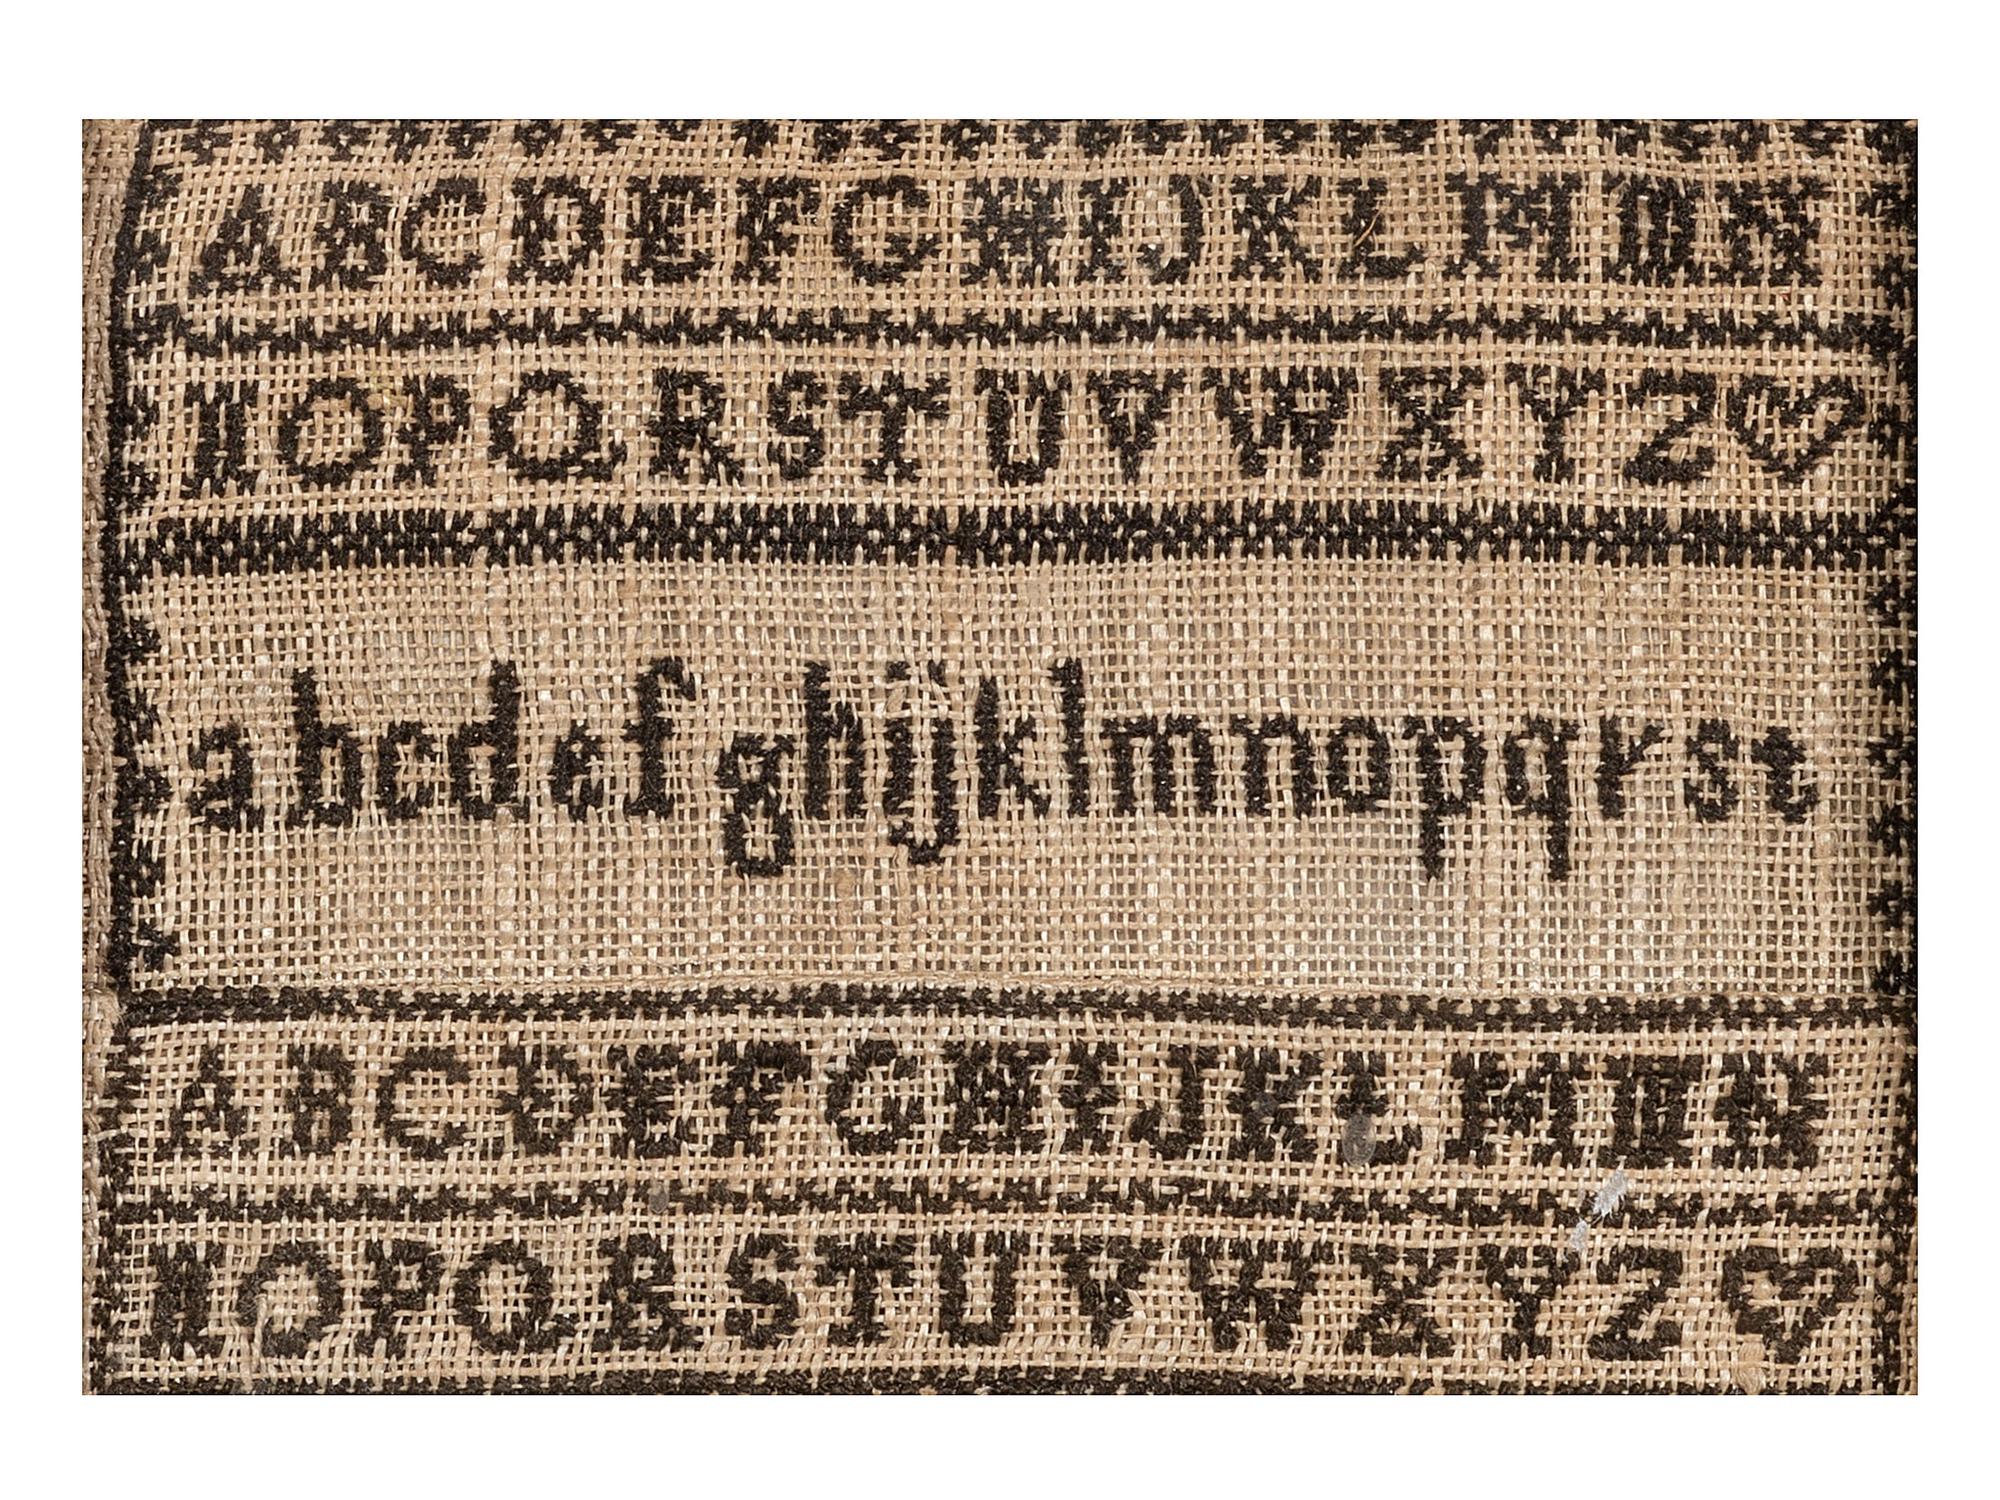 ABCDEFGHIJKLMMN
NOPQRSTUVWXYZ
abcdefghijklmnopqrst
ABCDEFGHIJKLMMN
NOPQRSTUVWXYZ